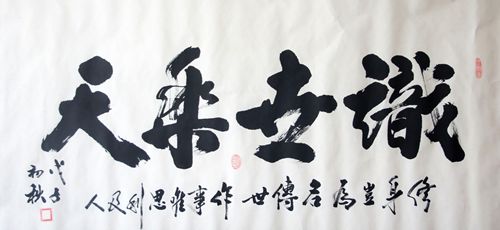 識世乘天
修身豈為名傳世作事惟思利及人
戊子
初秋